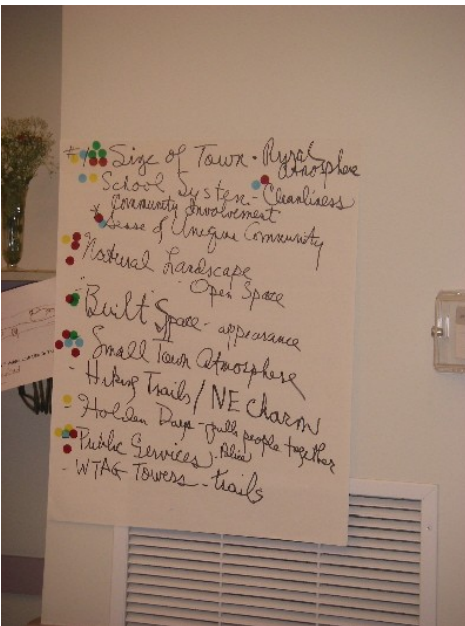 #1 Size of Town - Rural Atmosphere
School System - Cleanliness
Community Involvement
* Sense of Unique Community
Natural Landscape
- Open Space
"Built" Space - appearance
Small Town Atmosphere
- Hiking Trails / NE Charm
- Holden Days - pulls people together
Public Services -
- WTAG Towers - trails